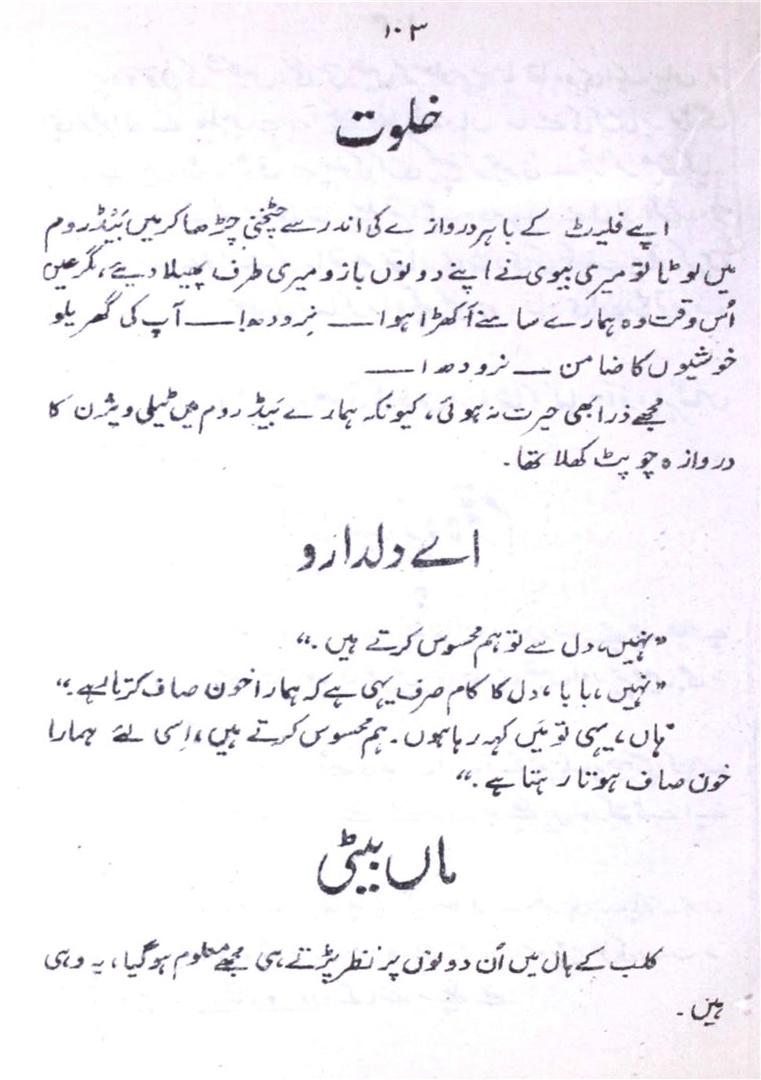 ۱۰۳
خلوت
اپنے فلیٹ کے باہر دروازے کی اندر سے چٹخنی چڑھا کر میں بیڈ روم
میں لوٹا تو میری بیوی نے اپنے دونوں بازو میری طرف پھیلا دیئے، مگر عین
اُس وقت وہ ہمارے سامنے آکھڑا ہوا ـــــ نِرودھ! ـــــ آپ کی گھریلو
خوشیوں کا ضامن ـــــ نرودھ! ـــــ
مجھے ذرا بھی حیرت نہ ہوئی، کیونکہ ہمارے بَیڈ روم میں ٹیلی ویژن کا
دروازہ چوپٹ کھلا تھا۔
اے دلدارو
”نہیں، دل سے تو ہم محسوس کرتے ہیں۔“
”نہیں، بابا، دل کا کام صرف یہی ہے کہ ہمارا خون صاف کرتا ہے۔“
”ہاں، یہی تو مَیں کہہ رہا ہوں۔ ہم محسوس کرتے ہیں، اِسی لئے ہمارا
خون صاف ہوتا رہتا ہے۔“
ماں بیٹی
کلب کے ہال میں اُن دونوں پر نظر پڑتے ہی مجھے معلوم ہوگیا، یہ وہی
ہیں۔